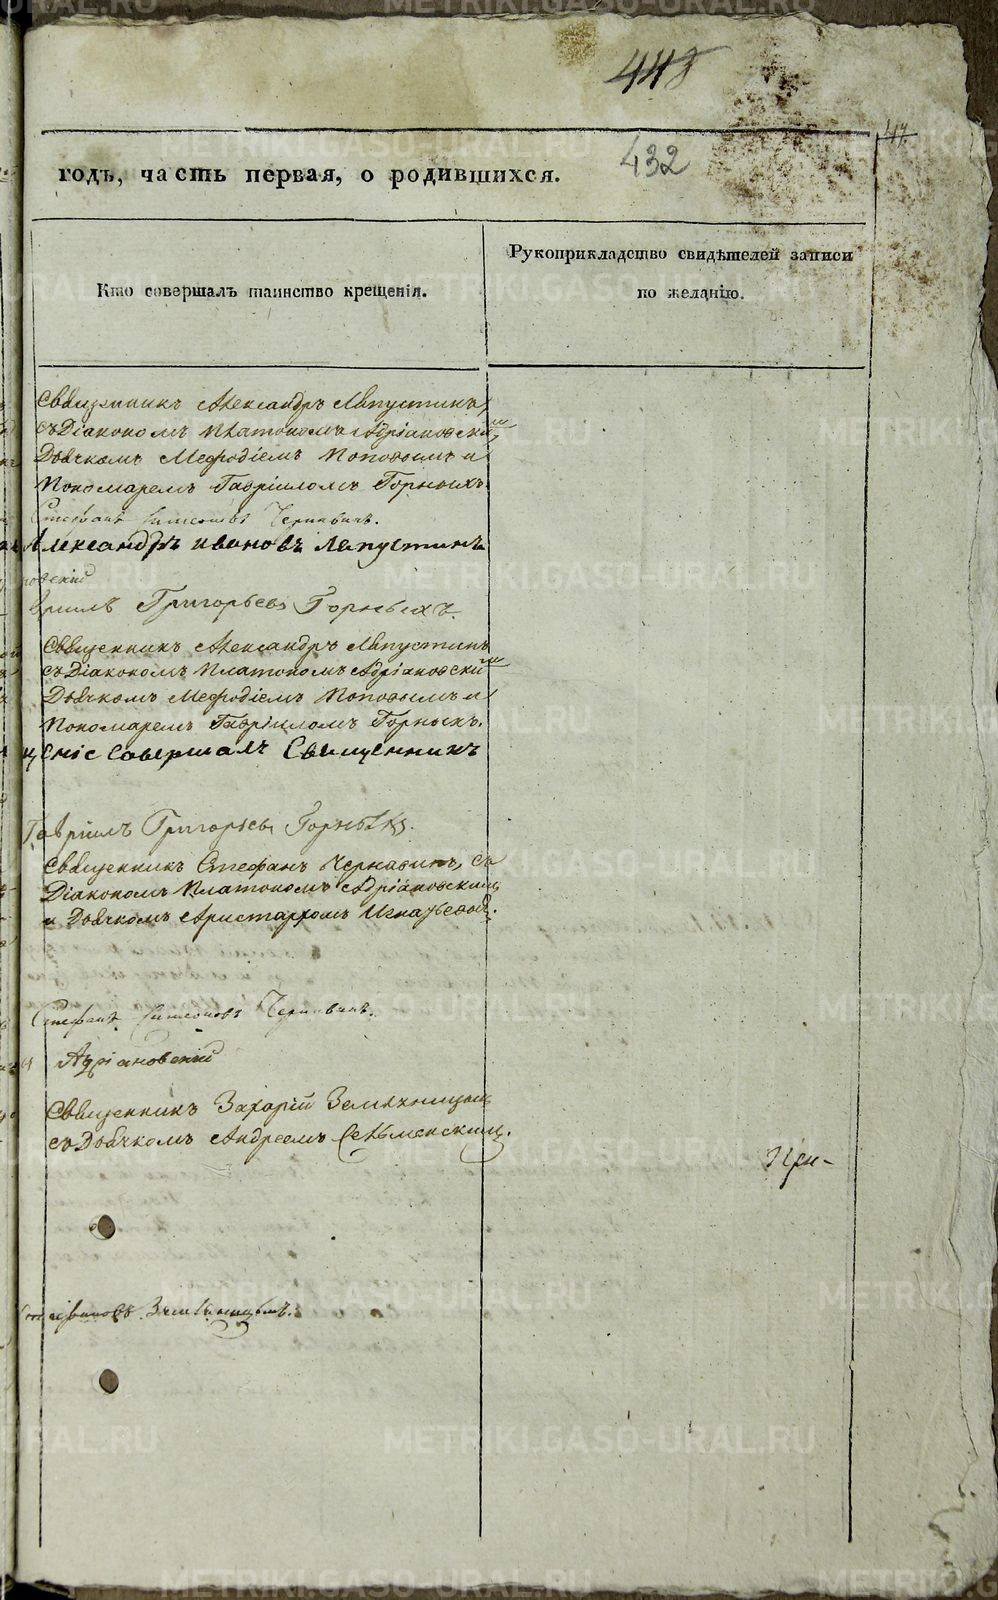 443
432
годъ, часть первая, о родившихся.
Кто совершалъ таинство крещенія.
Рукоприкладство свидѣтелей записи
по желанію.
Священникъ Александръ Лапустинъ,
съ Діакономъ Платономъ Адріановским
Дьячкомъ Мефодіемъ Поповымъ и
Пономаремъ Гавріиломъ Горныхъ.
Стефанъ Симеоновъ
Александръ Ивановъ Лапустинъ
Григорьевъ Горныхъ.
Священникъ Александръ Лапустинъ
съ Діакономъ Платономъ Адріановским
Дьячкомъ Мефодіемъ Поповымъ и
Пономаремъ Гавріиломъ Горныхъ.
щеніе совершалъ Священникъ
Гавріилъ Григорьевъ Горныхъ.
Священникъ Стефанъ Чернавинъ, съ
Діакономъ Платономъ Адріановскимъ
и Дьячкомъ Аристархомъ
Стефанъ Симеоновъ
Адріановскій
Священникъ Захарій
съ Дьячкомъ Андреемъ
При-
METRIKI.GASO-URAL.RU